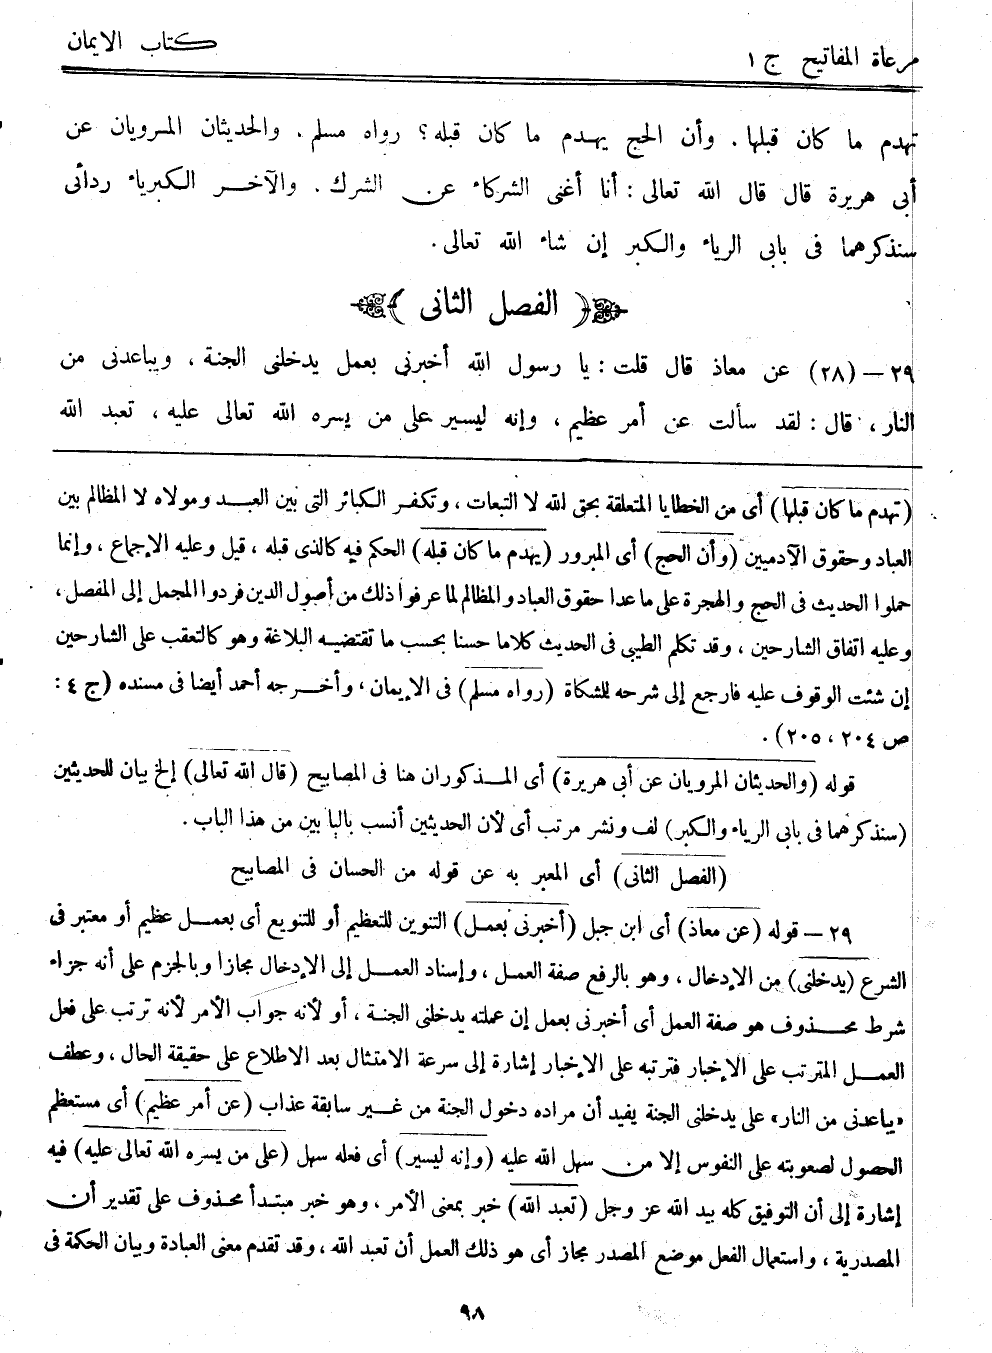 مرعاة المفاتيح ج ١
كتاب الايمان
تهدم ما كان قبلها. وأن الحج يهدم ما كان قبله؟ رواه مسلم. والحديثان المرويان عن
أبى هريرة قال قال الله تعالى: أنا أغنى الشركاء عن الشرك. والآخر الكبرياء ردائى
سنذكرهما فى بابى الرياء والكبر إن شاء الله تعالى.
﴿ الفصل الثانى ﴾
٢٩ — (٢٨) عن معاذ قال قلت: يا رسول الله أخبرنى بعمل يدخلنى الجنة، ويباعدنى من
النار، قال: لقد سألت عن أمر عظيم، وإنه ليسير على من يسره الله تعالى عليه، تعبد الله
(تهدم ما كان قبلها) أى من الخطايا المتعلقة بحق الله لا التبعات، وتكفر الكبائر التى بين العبد ومولاه لا المظالم بين
العباد وحقوق الآدميين (وأن الحج) أى المبرور (يهدم ما كان قبله) الحكم فيه كالذى قبله، قيل وعليه الإجماع، وإنما
حملوا الحديث فى الحج والهجرة على ما عدا حقوق العباد والمظالم لما عرفوا ذلك من أصول الدين فردوا المجمل إلى المفصل،
وعليه اتفاق الشارحين، وقد تكلم الطيبى فى الحديث كلاما حسنا بحسب ما تقتضيه البلاغة وهو كالتعقب على الشارحين
إن شئت الوقوف عليه فارجع إلى شرحه للمشكاة (رواه مسلم) فى الإيمان، وأخرجه أحمد أيضا فى مسنده (ج ٤:
ص ٢٠٤، ٢٠٥).
قوله (والحديثان المرويان عن أبى هريرة) أى المذكوران هنا فى المصابيح (قال الله تعالى) إلخ بيان للحديثين
(سنذكرهما فى بابى الرياء والكبر) لف ونشر مرتب أى لأن الحديثين أنسب بالبابين من هذا الباب.
(الفصل الثانى) أى المعبر به عن قوله من الحسان فى المصابيح
٢٩ — قوله (عن معاذ) أى ابن جبل (أخبرنى بعمل) التنوين للتعظيم أو للتنويع أى بعمل عظيم أو معتبر فى
الشرع (يدخلنى) من الإدخال، وهو بالرفع صفة العمل، وإسناد العمل إلى الإدخال مجازا وبالجزم على أنه جزاء
شرط محذوف هو صفة العمل أى أخبرنى بعمل إن عملته يدخلنى الجنة، أو لأنه جواب الأمر لأنه ترتب على فعل
العمل المترتب على الإخبار فترتبه على الإخبار إشارة إلى سرعة الامتثال بعد الاطلاع على حقيقة الحال، وعطف
«يباعدنى من النار» على يدخلنى الجنة يفيد أن مراده دخول الجنة من غير سابقة عذاب (عن أمر عظيم) أى مستعظم
الحصول لصعوبته على النفوس إلا من سهل الله عليه (وإنه ليسير) أى فعله سهل (على من يسره الله تعالى عليه) فيه
إشارة إلى أن التوفيق كله بيد الله عز وجل (تعبد الله) خبر بمعنى الأمر، وهو خبر مبتدأ محذوف على تقدير أن
المصدرية، واستعمال الفعل موضع المصدر مجاز أى هو ذلك العمل أن تعبد الله، وقد تقدم معنى العبادة وبيان الحكمة فى
٩٨